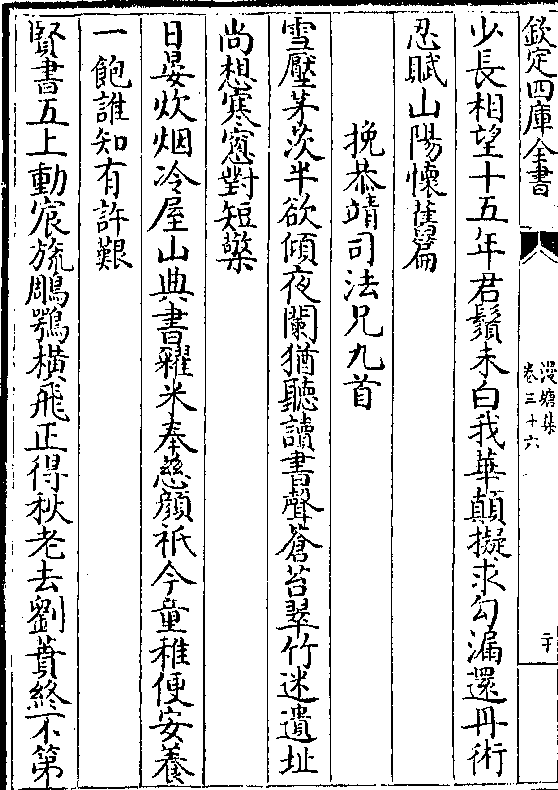 欽定四庫全書
漫塘集
卷三十六
二十
少長相望十五年君鬚未白我華顛擬求勾漏還丹術
忍賦山陽懷舊篇
挽恭靖司法兄九首
雪壓茅茨半欲傾夜闌猶聽讀書聲蒼苔翠竹迷遺址
尚想寒窻對短檠
日晏炊烟冷屋山典書糴米奉慈顔祇今童稚便安養
一飽誰知有許艱
賢書五上動宸旒鵰鶚橫飛正得秋老去劉蕡終不第